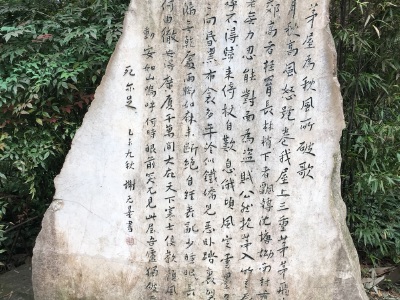 茅屋為秋風所破歌
月秋高風怒號卷我屋上三重茅茅飛
郊高者挂罥長林梢下者飄轉沈塘坳南村
老無力忍能對面為盜賊公然抱茅入竹去
呼不得歸來倚杖自歎息俄頃風定雲墨
向昏黑布衾多年冷似鐵嬌兒惡臥踏裏裂
漏無乾處雨腳如麻未斷絕自經喪亂少睡眠
何由徹安得廣廈千萬間大庇天下寒士俱歡顏風
動安如山嗚呼何時眼前突兀見此屋吾廬獨破
死亦足 乙未九秋 謝无量書